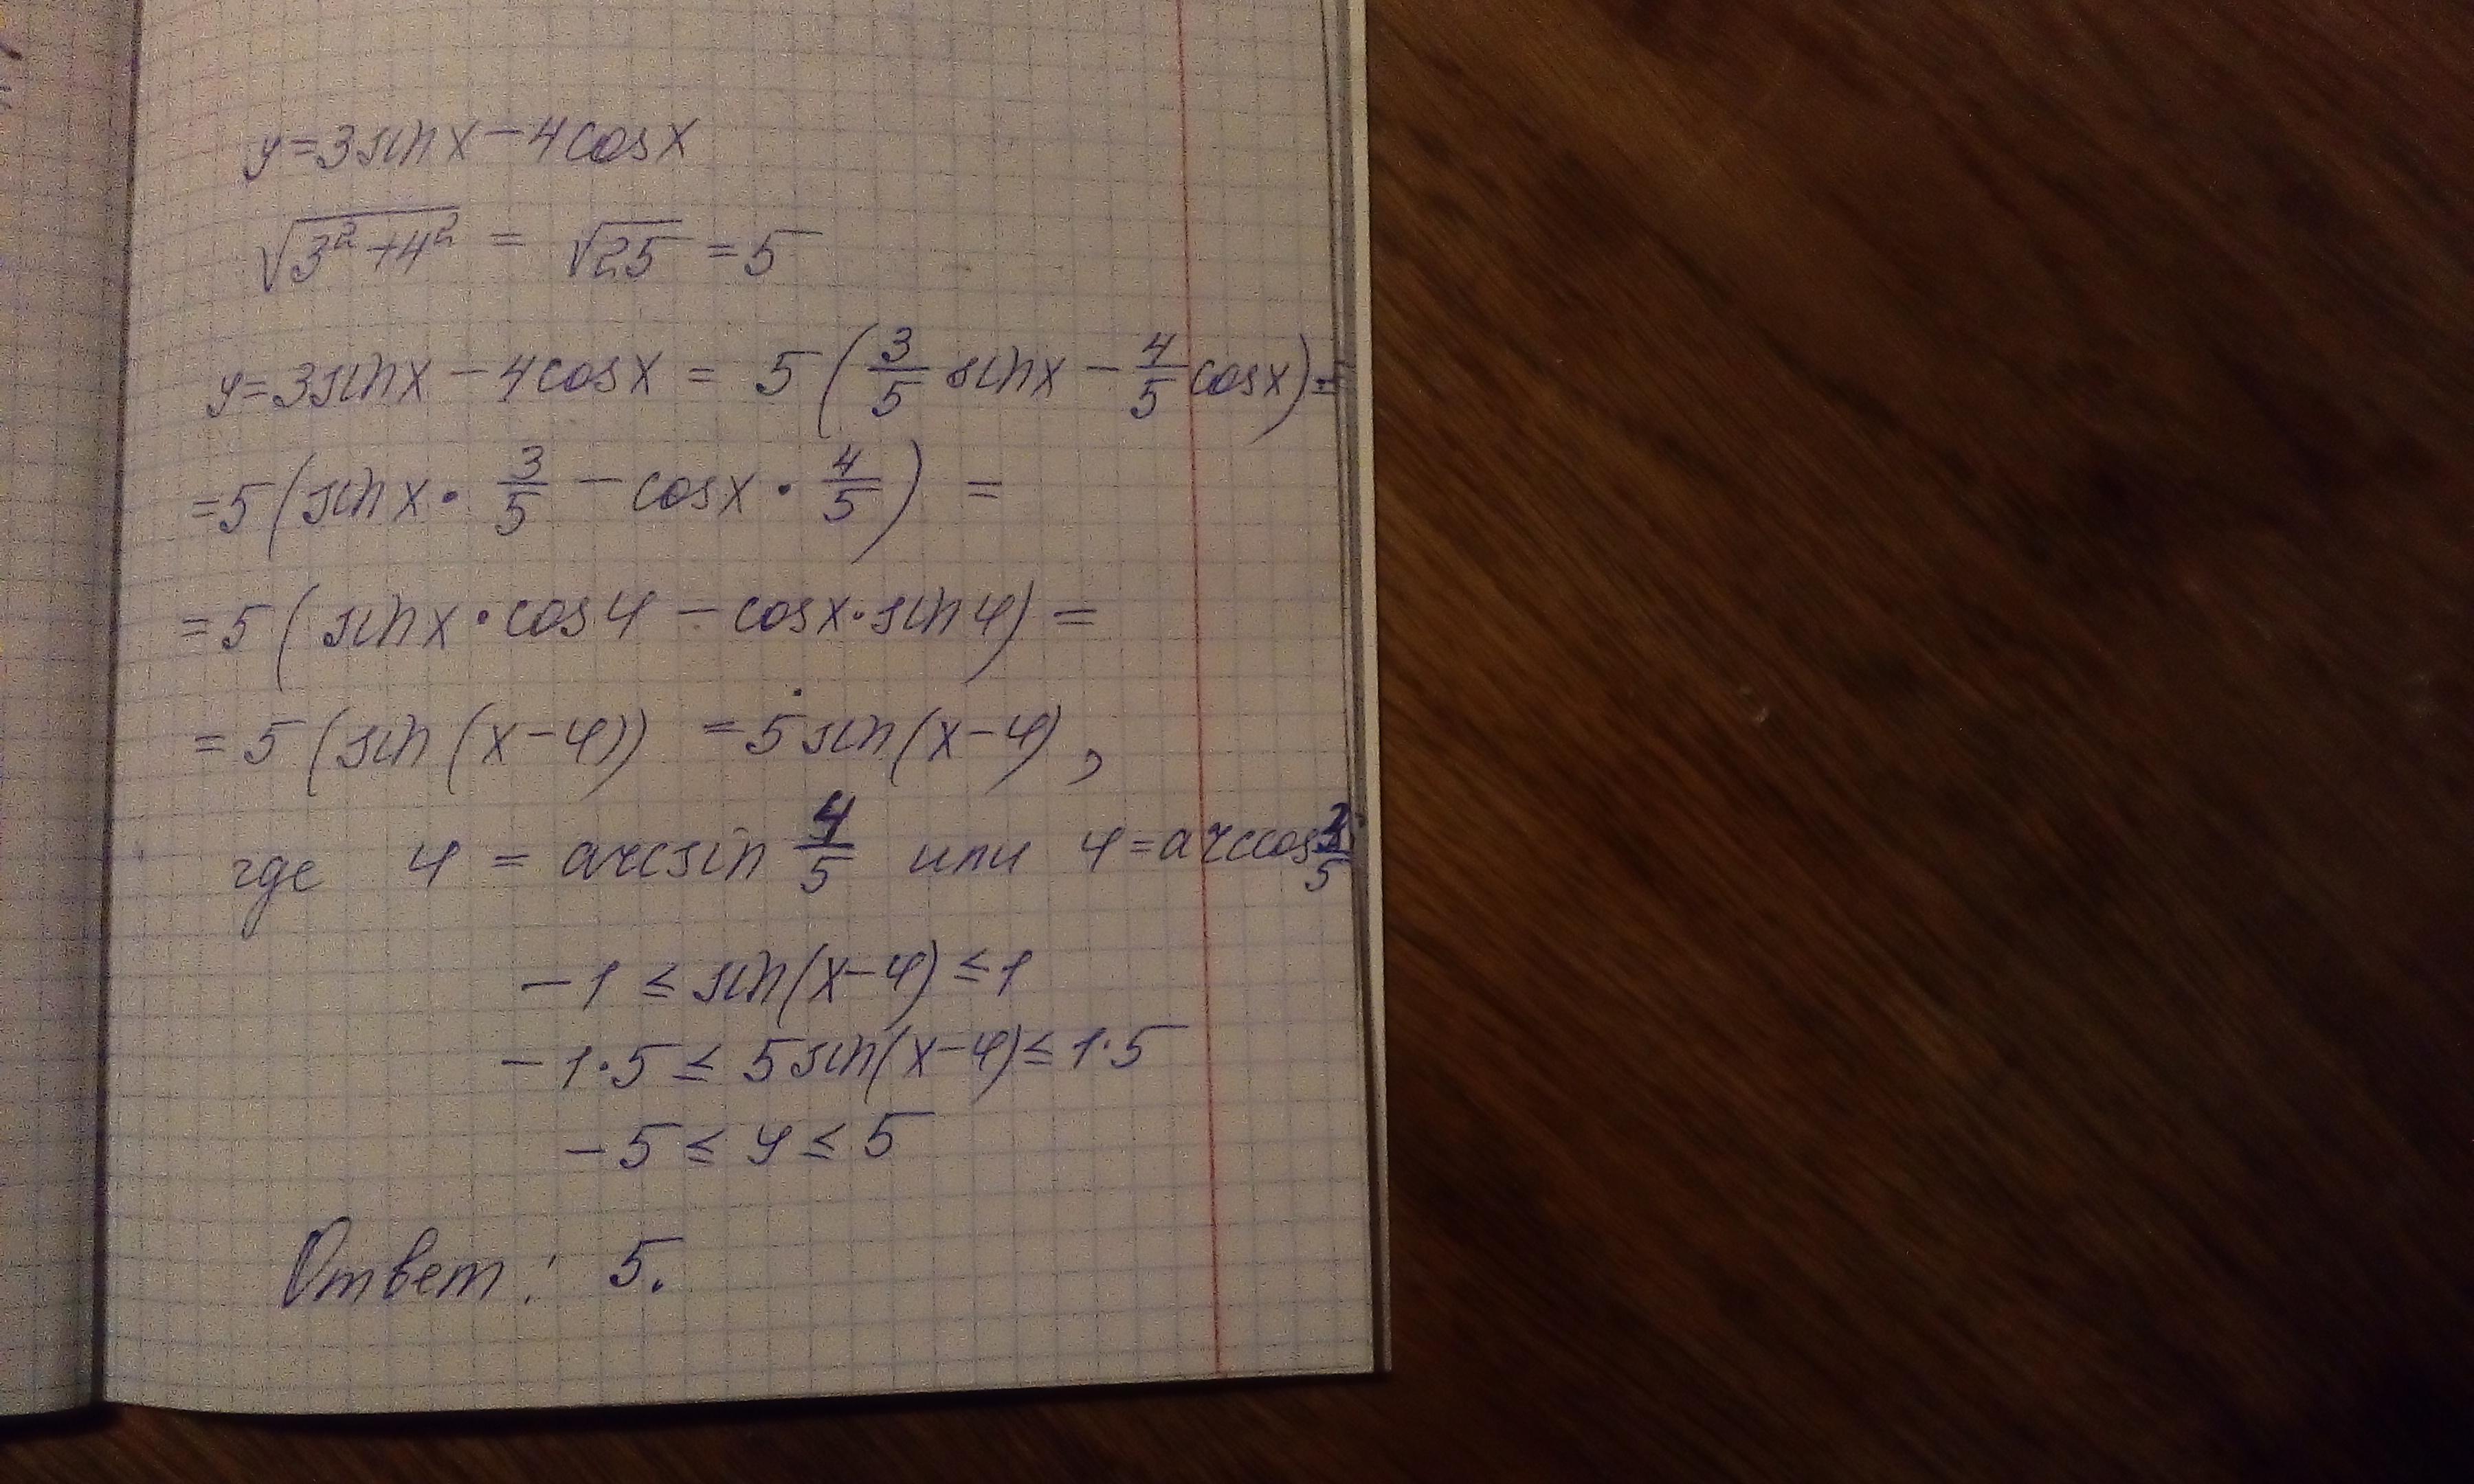 y=3sinx-4cosx
√(3²+4²) = √25 = 5
y=3sinx-4cosx = 5(3/5 sinx - 4/5 cosx)=
=5(sinx · 3/5 - cosx · 4/5) =
=5(sinx · cosφ - cosx · sinφ) =
=5(sin(x-φ)) =5sin(x-φ),
где φ = arcsin 4/5 или φ=arccos 3/5
-1 ≤ sin(x-φ) ≤ 1
-1·5 ≤ 5sin(x-φ) ≤ 1·5
-5 ≤ y ≤ 5
Ответ: 5.